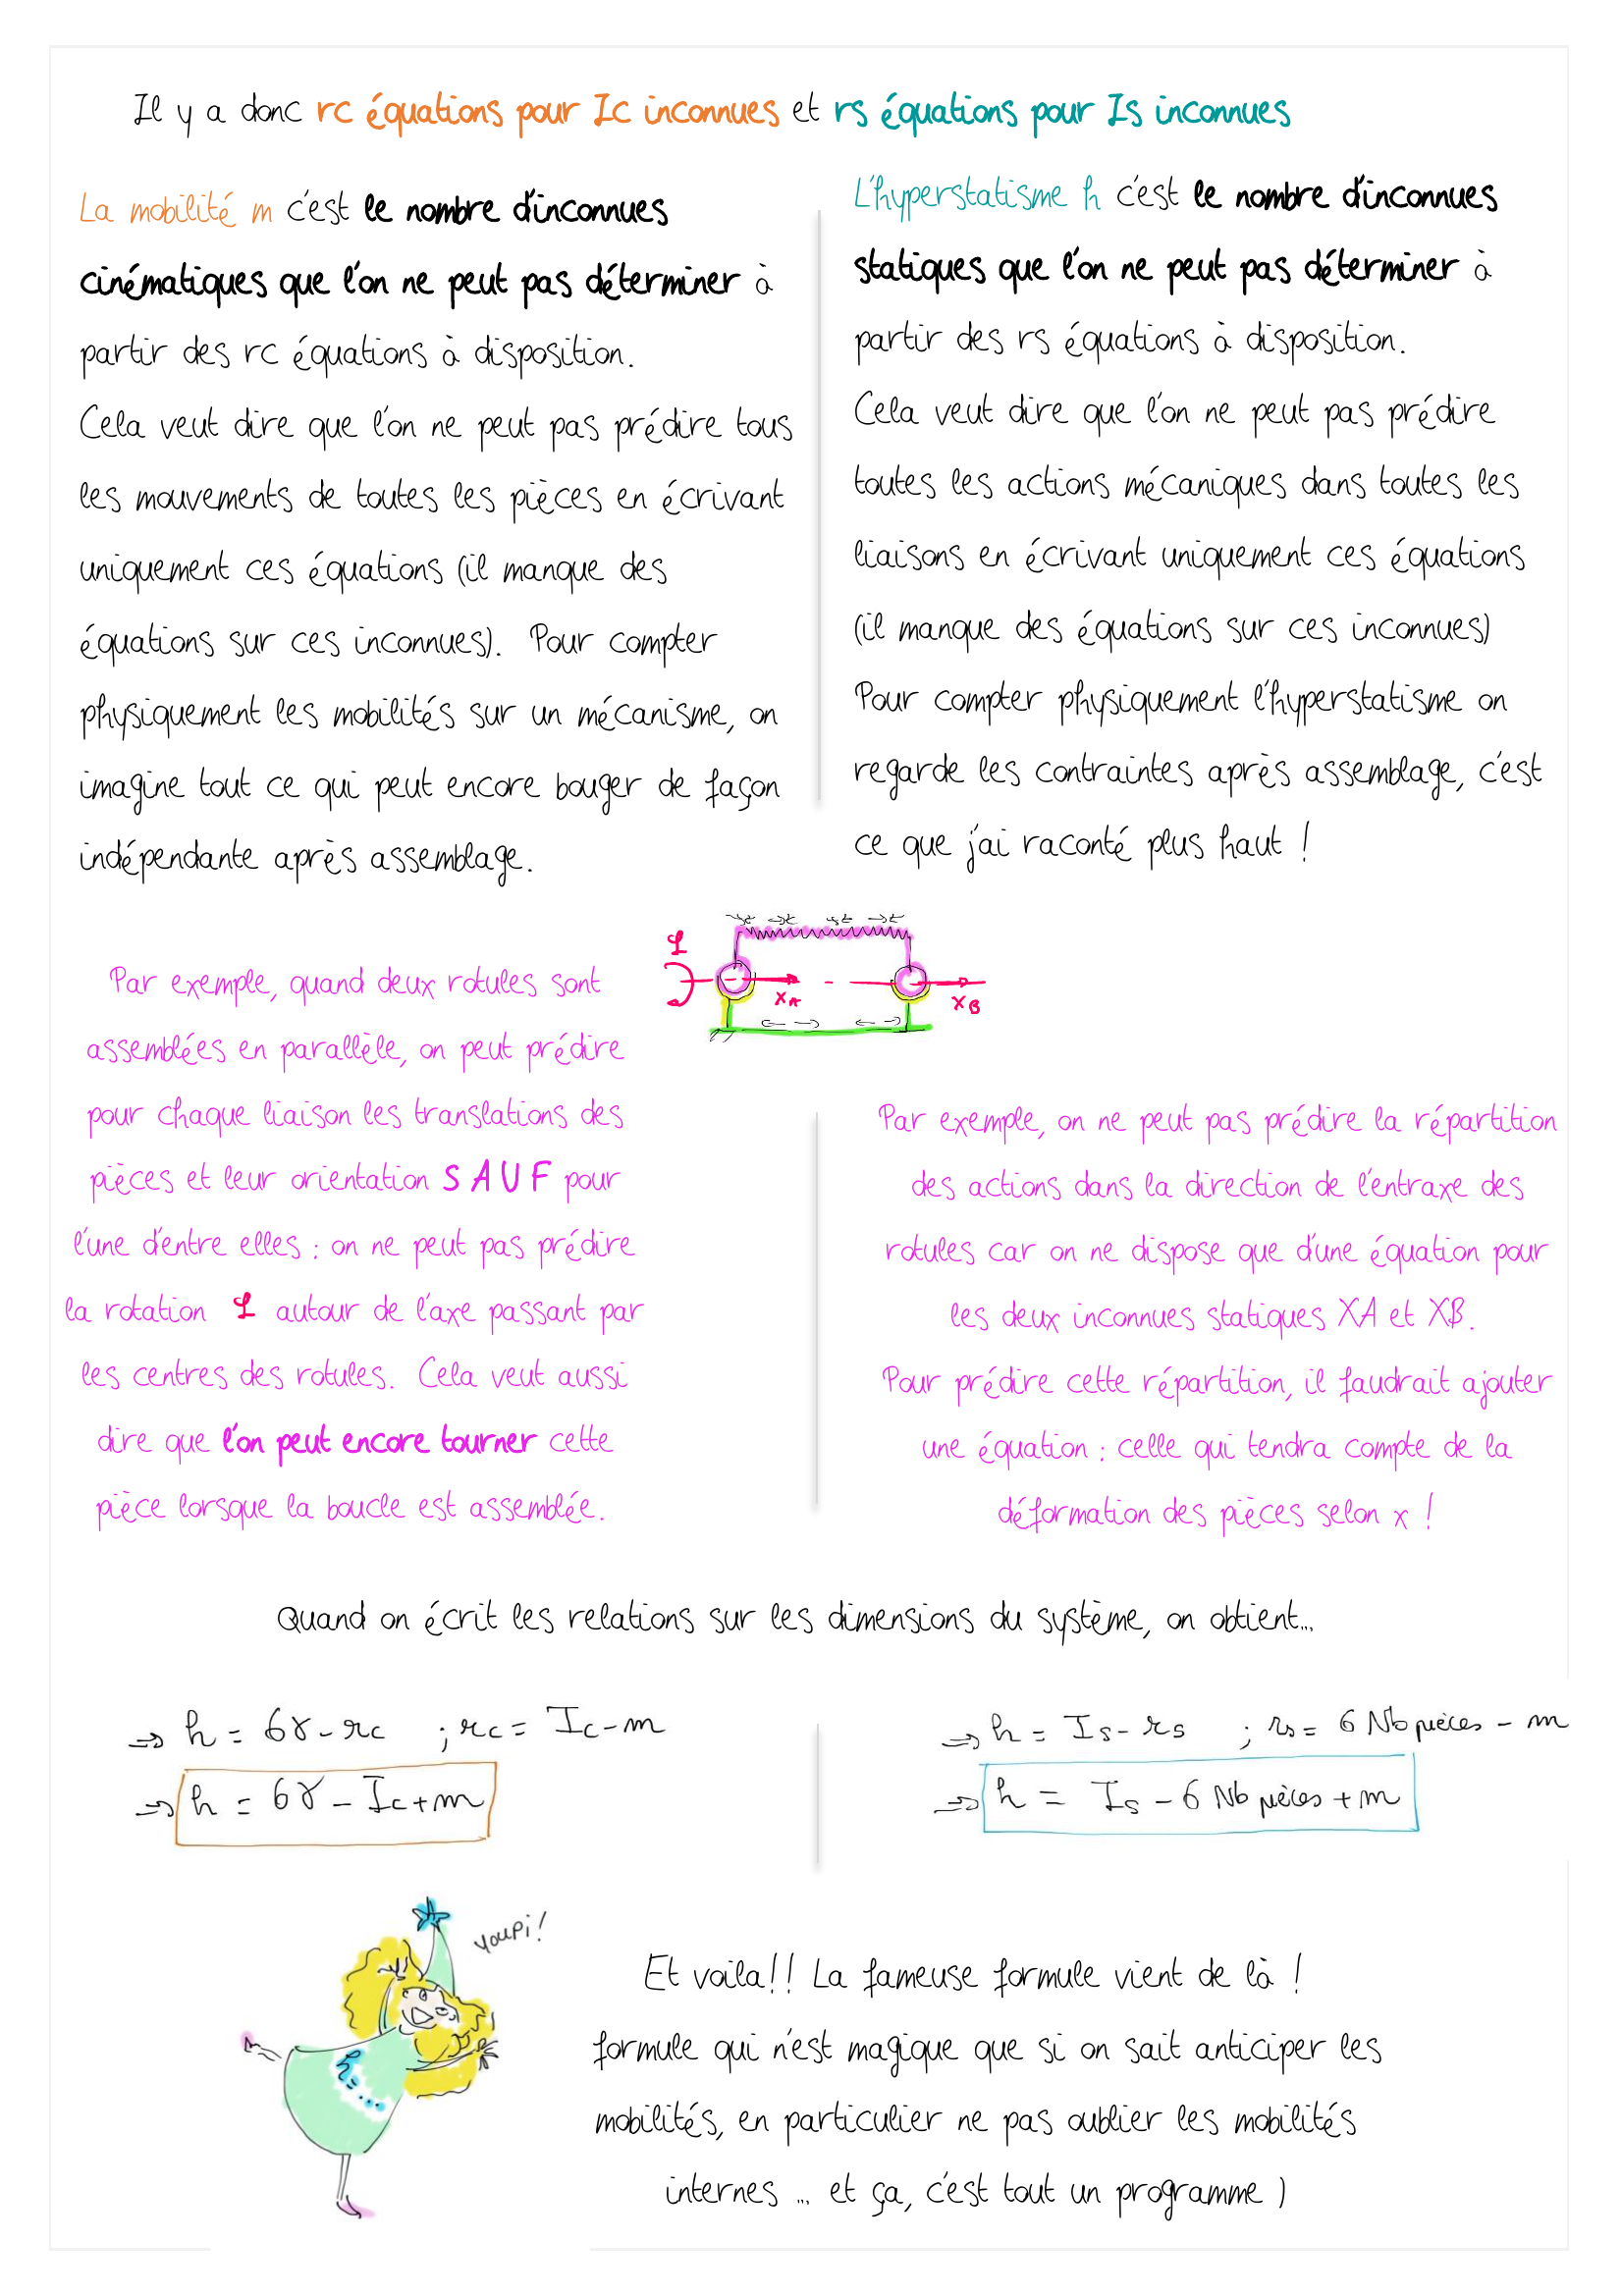 Il y a donc rc équations pour Ic inconnues et rs équations pour Is inconnues
La mobilité m c'est le nombre d'inconnues
cinématiques que l'on ne peut pas déterminer à
partir des rc équations à disposition.
Cela veut dire que l'on ne peut pas prédire tous
les mouvements de toutes les pièces en écrivant
uniquement ces équations (il manque des
équations sur ces inconnues). Pour compter
physiquement les mobilités sur un mécanisme, on
imagine tout ce qui peut encore bouger de façon
indépendante après assemblage.
L'hyperstatisme h c'est le nombre d'inconnues
statiques que l'on ne peut pas déterminer à
partir des rs équations à disposition.
Cela veut dire que l'on ne peut pas prédire
toutes les actions mécaniques dans toutes les
liaisons en écrivant uniquement ces équations
(il manque des équations sur ces inconnues)
Pour compter physiquement l'hyperstatisme on
regarde les contraintes après assemblage, c'est
ce que j'ai raconté plus haut !
XA
XB
Par exemple, quand deux rotules sont
assemblées en parallèle, on peut prédire
pour chaque liaison les translations des
pièces et leur orientation SAUF pour
l'une d'entre elles : on ne peut pas prédire
la rotation autour de l'axe passant par
les centres des rotules. Cela veut aussi
dire que l'on peut encore tourner cette
pièce lorsque la boucle est assemblée.
Par exemple, on ne peut pas prédire la répartition
des actions dans la direction de l'entraxe des
rotules car on ne dispose que d'une équation pour
les deux inconnues statiques XA et XB.
Pour prédire cette répartition, il faudrait ajouter
une équation : celle qui tendra compte de la
déformation des pièces selon x !
Quand on écrit les relations sur les dimensions du système, on obtient...
⇒ h = 6γ - rc ; rc = Ic - m
⇒ h = 6γ - Ic + m
⇒ h = Is - rs ; rs = 6 Nb pièces - m
⇒ h = Is - 6 Nb pièces + m
youpi!
h=...
Et voila!! La fameuse formule vient de là !
formule qui n'est magique que si on sait anticiper les
mobilités, en particulier ne pas oublier les mobilités
internes ... et ça, c'est tout un programme )